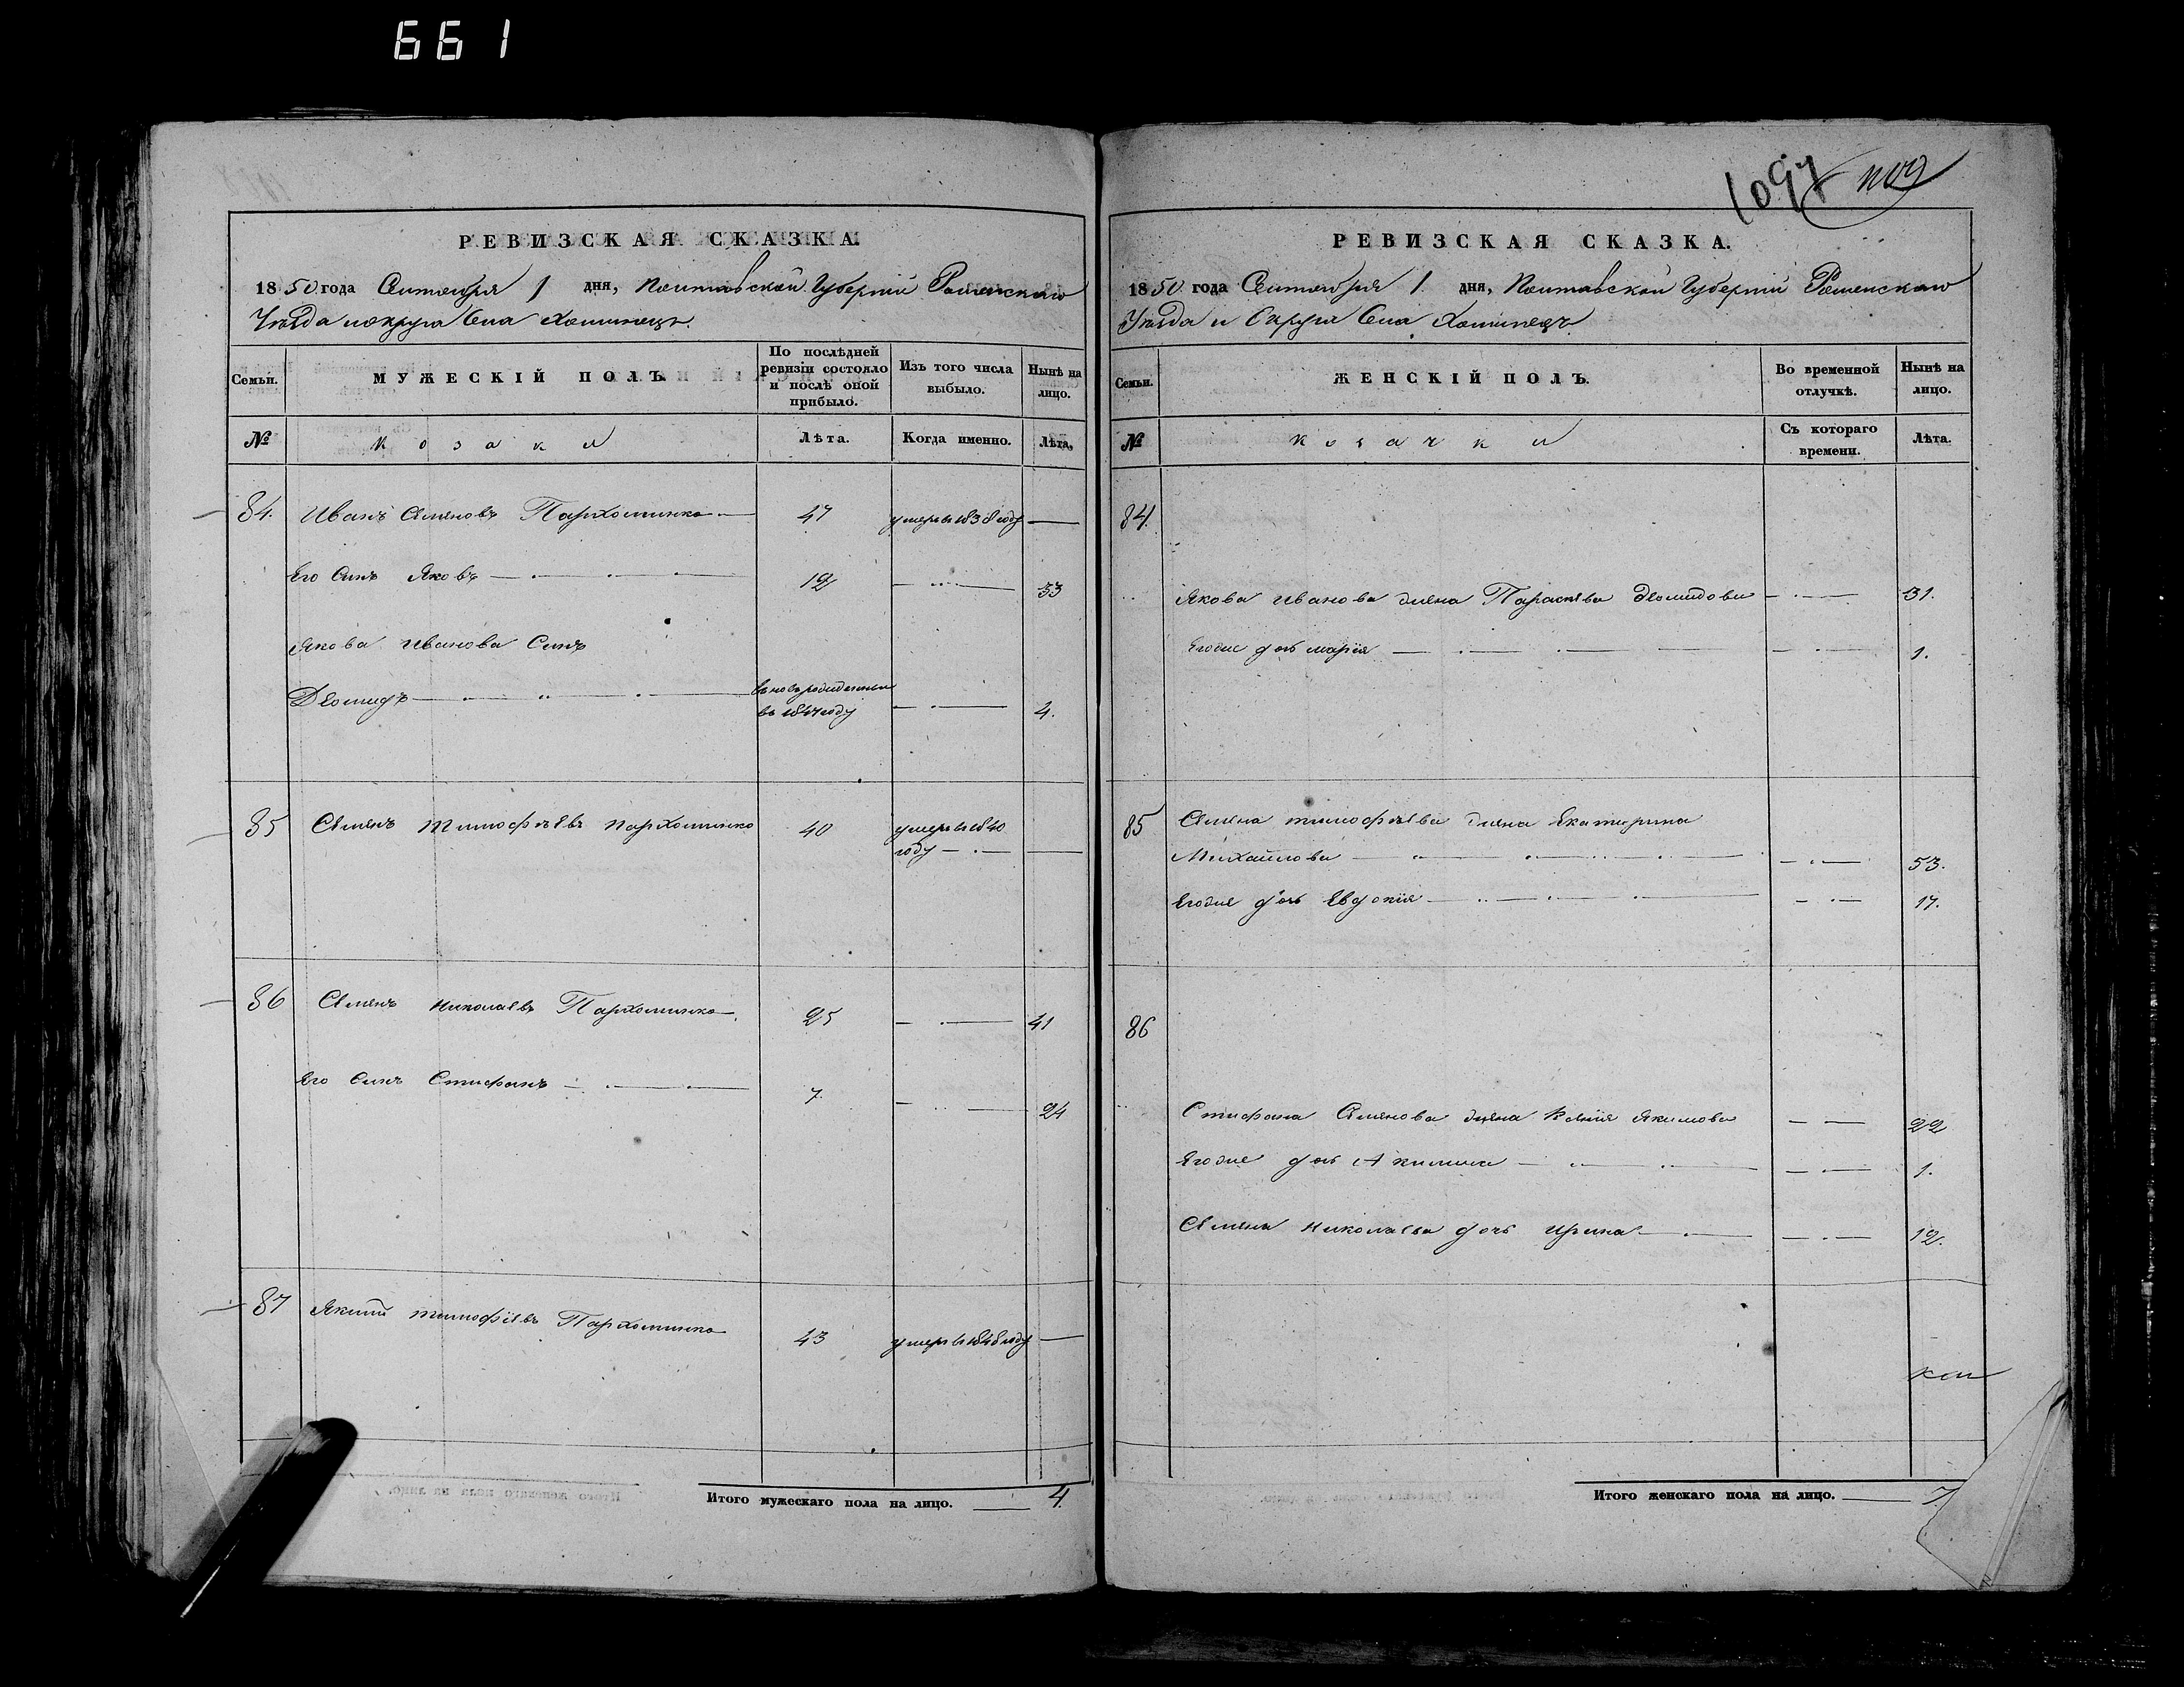 661
1097
РЕВИЗСКАЯ СКАЗКА.
1850 года Сентября 1 дня, Полтавской Губерніи Роменскаго
Уѣзда и округа Села Хоминецъ.
Семьи.
МУЖЕСКІЙ ПОЛЪ.
По послѣдней ревизіи состояло и послѣ оной прибыло.
Изъ того числа выбыло.
Нынѣ на лицо.
№
Козаки
Лѣта.
Когда именно.
Лѣта.
84. Иванъ Семеновъ Пархоминко 47 умеръ въ 1838 году
Его Сынъ Яковъ 12 33
Якова Иванова Сынъ
Деомидъ вновьрожденный
въ 1847 году 4.
85 Семенъ Тимофѣевъ Пархоминко 40 умеръ въ 1840
году
86 Семенъ Николаевъ Пархоминко 25 41
Его Сынъ Стефанъ 7 24
87 Якимъ Тимофіевъ Пархоминко 43 умеръ въ 1848 году
Итого мужескаго пола на лицо. 4
РЕВИЗСКАЯ СКАЗКА.
1850 года Сентября 1 дня, Полтавской Губерніи Роменскаго
Уѣзда и Округа Села Хоминецъ
Семьи.
ЖЕНСКІЙ ПОЛЪ.
Во временной отлучкѣ.
Нынѣ на лицо.
№
козачки
Съ котораго времени.
Лѣта.
84.
Якова Иванова жена Параскева Деомидова 31.
Егоже дочь Марія 1.
85 Семена Тимофѣева жена Екатерина
Михайлова 53.
Егоже дочь Евдокія 17.
86
Стефана Семенова жена Ксенія Якимова 22
Егоже дочь Акилина 1.
Семена Николаева дочь Ирина 12.
Итого женскаго пола на лицо. 7